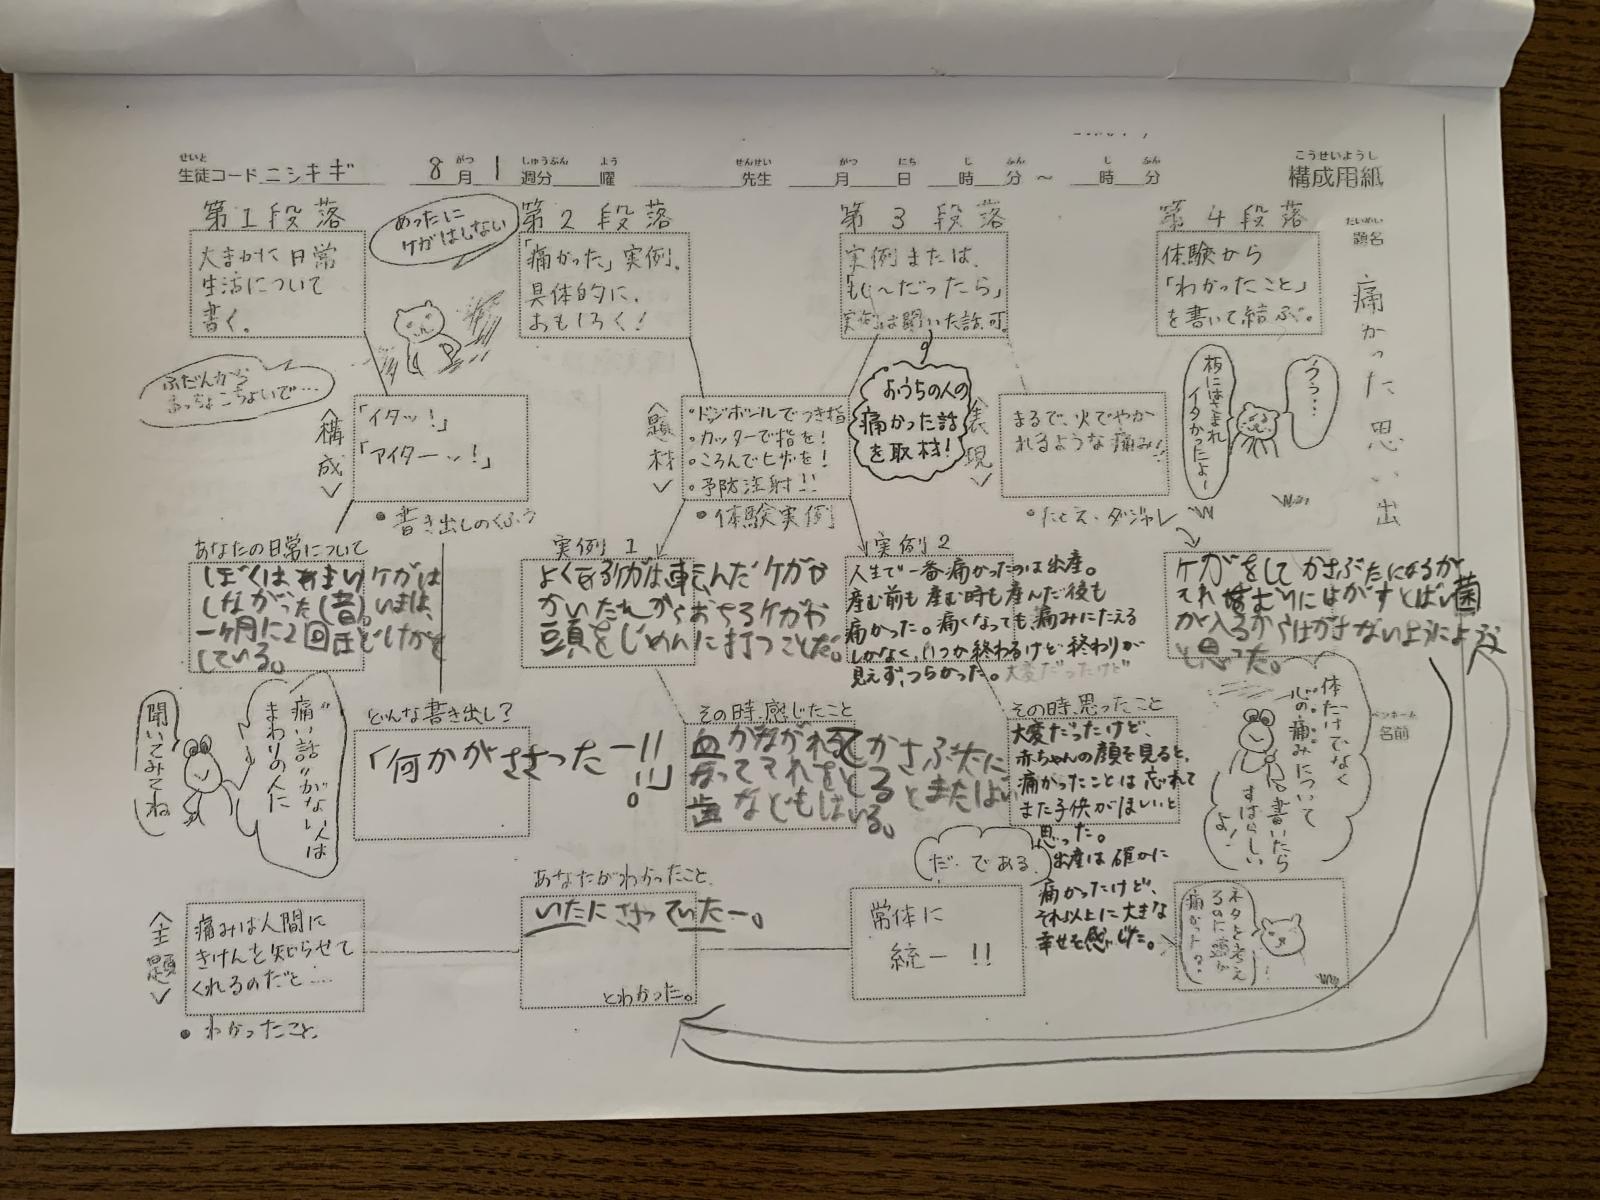 せいと がつ しゅうぶん よう せんせい がつ にち じ ふん じ ふん こうせいようし
生徒コード ニシキギ 8月 1週分 曜 先生 月 日 時 分 ～ 時 分 構成用紙
だいめい
題名
痛かった思い出
ペンネーム
名前
第1段落
大まかに日常
生活について
書く。
めったに
ケガはしない
第2段落
「痛かった」実例。
具体的に。
おもしろく!
第3段落
実例または、
「もし～だったら」
実例は聞いた話可。
第4段落
体験から
「わかったこと」
を書いて結ぶ。
ふだんから
おっちょこちょいで…
<構成>
「イタッ!」
「アイターッ!」
・書き出しのくふう
<題材>
・ドッジボールでつき指
・カッターで指を!
・ころんでヒザを!
・予防注射!!
・体験実例
おうちの人の
痛かった話
を取材!
<表現>
まるで、火でやか
れるような痛み!!
・たとえ・ダジャレ
柄にはさまれ
イタかったよ～
うぅ…
あなたの日常について
ぼくは、あまりケガは
しなかった(昔)。いまは、
一ヶ月に2回ほどけがを
している。
実例1
かいだんからおちるケガや
頭をじめんに打つことだ。
実例2
人生で一番痛かったのは出産。
産む前も産む時も産んだ後も
痛かった。痛くなっても、痛みにたえる
しかなく、いつか終わるけど終わりが
見えず、つらかった。大変だったけど
ケガをしてかさぶたになるが
それをむりにはがすとばい菌
が入るからはがさないようにしよう
と思った。
聞いてみてね
"痛い話"がない人は
まわりの人に
どんな書き出し?
「何かがささったー!!
!!」
その時、感じたこと
血がながれてかさぶたに
なってそれをとるとまたはい
その時、思ったこと
大変だったけど、
赤ちゃんの顔を見ると、
痛かったことは忘れて
また子供がほしいと
思った。
出産は確かに
痛かったけど、
それ以上に大きな
幸せを感じた。
体だけでなく
心の痛みについて
書いたら
すばらしい
よ!
<主題>
痛みは人間に
きけんを知らせて
くれるのだと……
・わかったこと。
あなたがわかったこと。
いたにささっていたー。
とわかった。
だ・である
常体に
統一!!
ネタを考え
るのに頭が
痛かった?